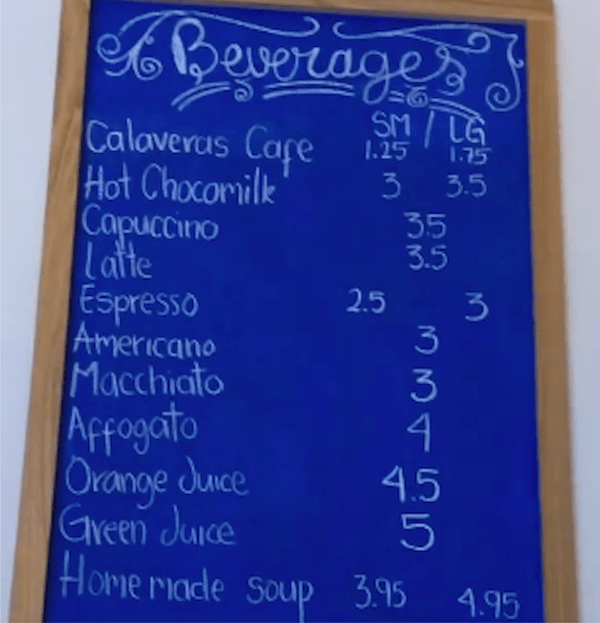 Beverages
SM / LG
Calaveras Cafe 1.25 1.75
Hot Chocomilk 3 3.5
Capuccino 3.5
Latte 3.5
Espresso 2.5 3
Americano 3
Macchiato 3
Affogato 4
Orange Juice 4.5
Green Juice 5
Homemade soup 3.95 4.95